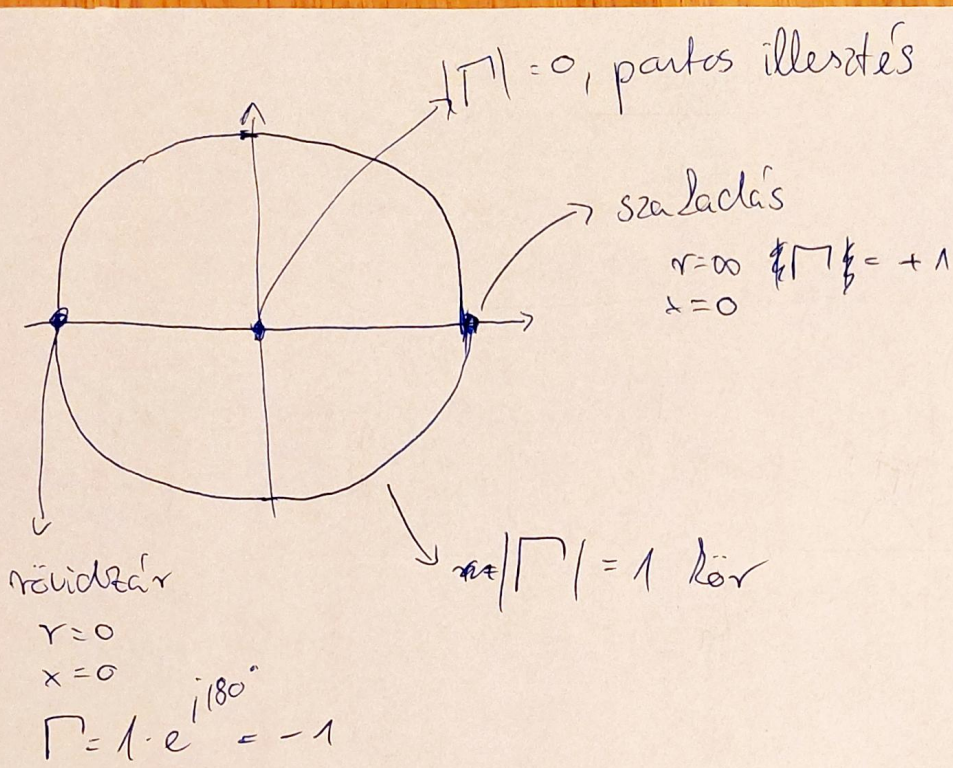 |Γ| = 0, pontos illesztés
szakadás
r=∞ Γ = +1
x=0
|Γ| = 1 kör
rövidzár
r=0
x=0
Γ = 1·e^j180° = -1